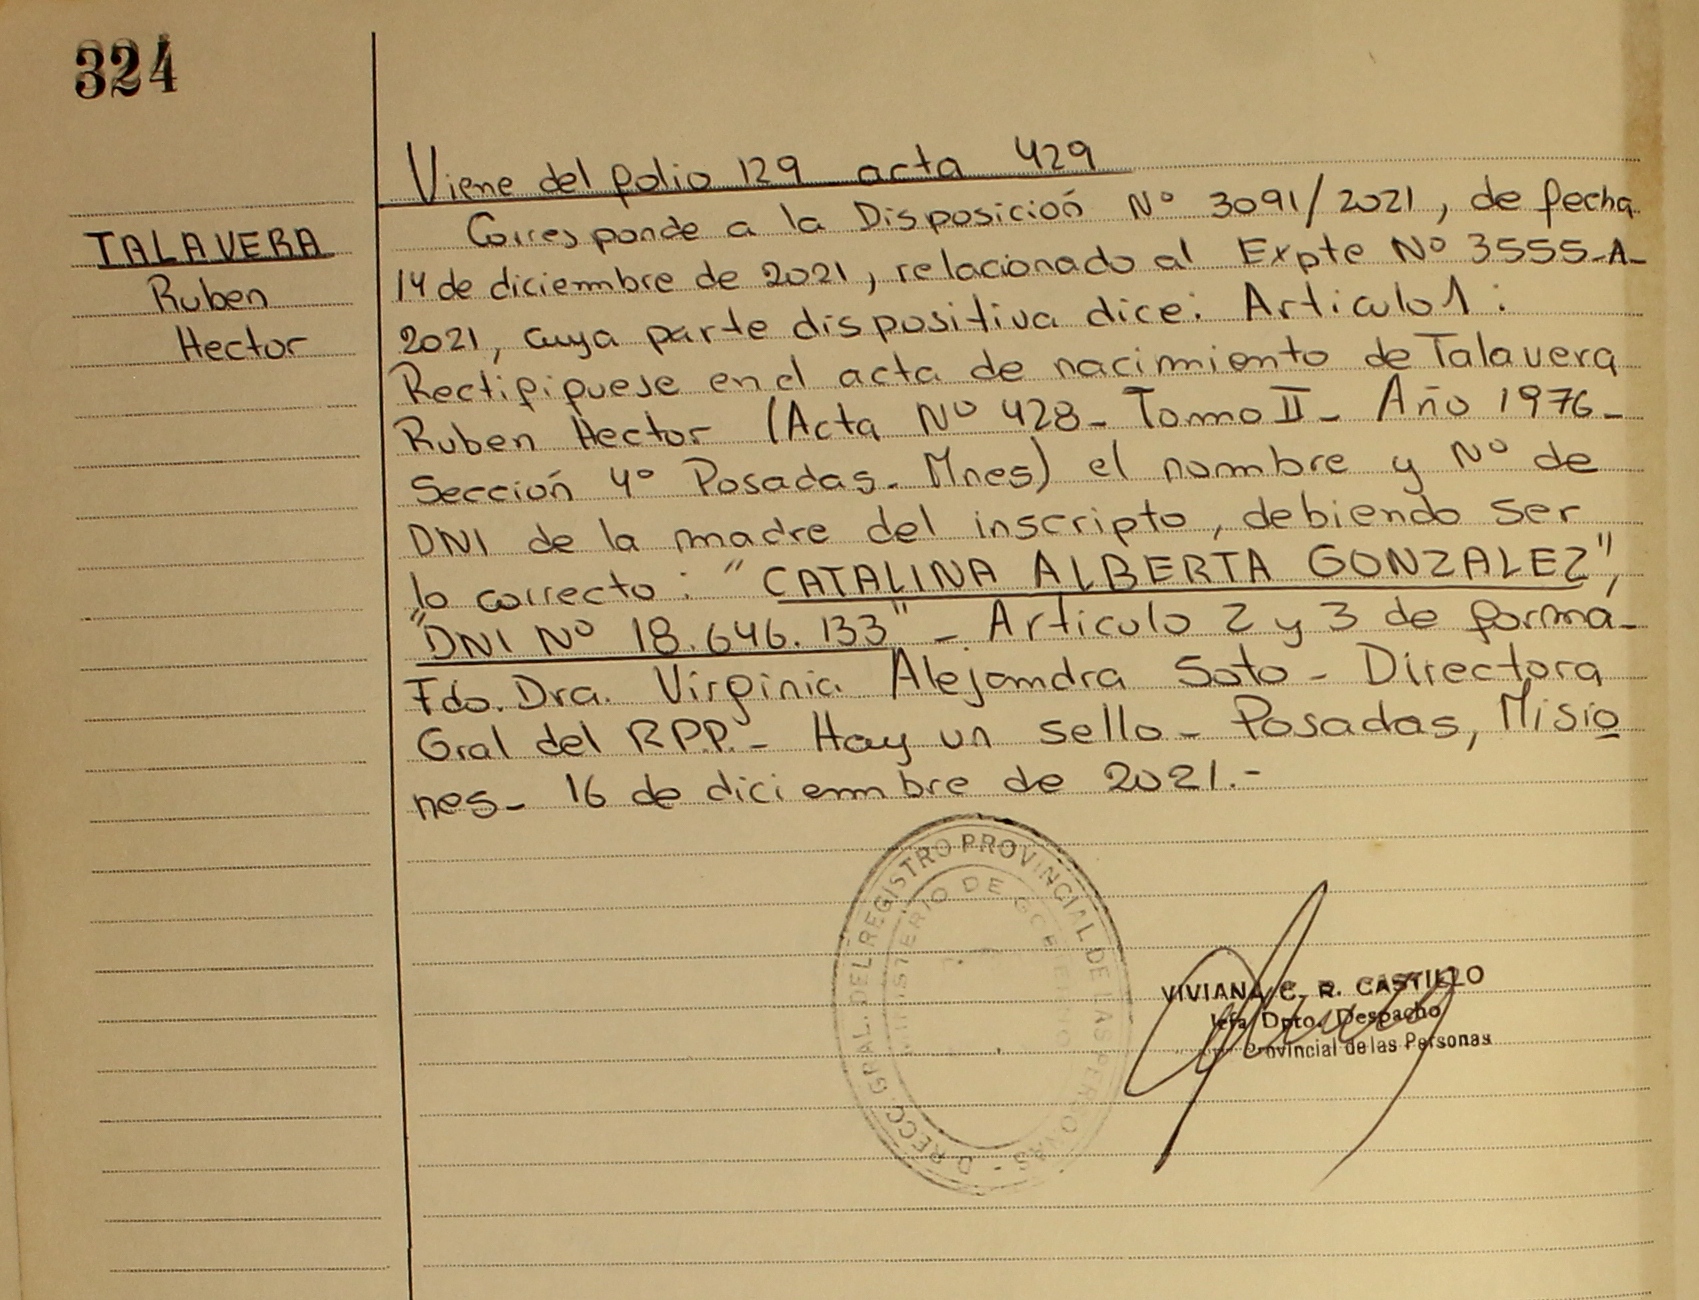 324
TALAVERA
Ruben
Hector
Viene del folio 129 acta 429
Corresponde a la Disposición Nº 3091/2021, de fecha
14 de diciembre de 2021, relacionado al Expte Nº 3555-A-
2021, cuya parte dispositiva dice: Articulo 1:
Rectifiquese en el acta de nacimiento de Talavera
Ruben Hector (Acta Nº 428- Tomo II- Año 1976-
Sección 4º Posadas. Mnes) el nombre y Nº de
DNI de la madre del inscripto, debiendo ser
lo correcto: "CATALINA ALBERTA GONZALEZ",
"DNI Nº 18.646.133"- Articulo 2 y 3 de forma-
Fdo. Dra. Virginia Alejandra Soto- Directora
Gral del RPP.- Hay un sello- Posadas, Misio
nes- 16 de diciembre de 2021.-
DIRECC. GRAL. DEL REGISTRO PROVINCIAL DE LAS PERSONAS -
MINISTERIO DE GOBIERNO
VIVIANA C. R. CASTILLO
Jefa Dpto. Despacho
Provincial de las Personas